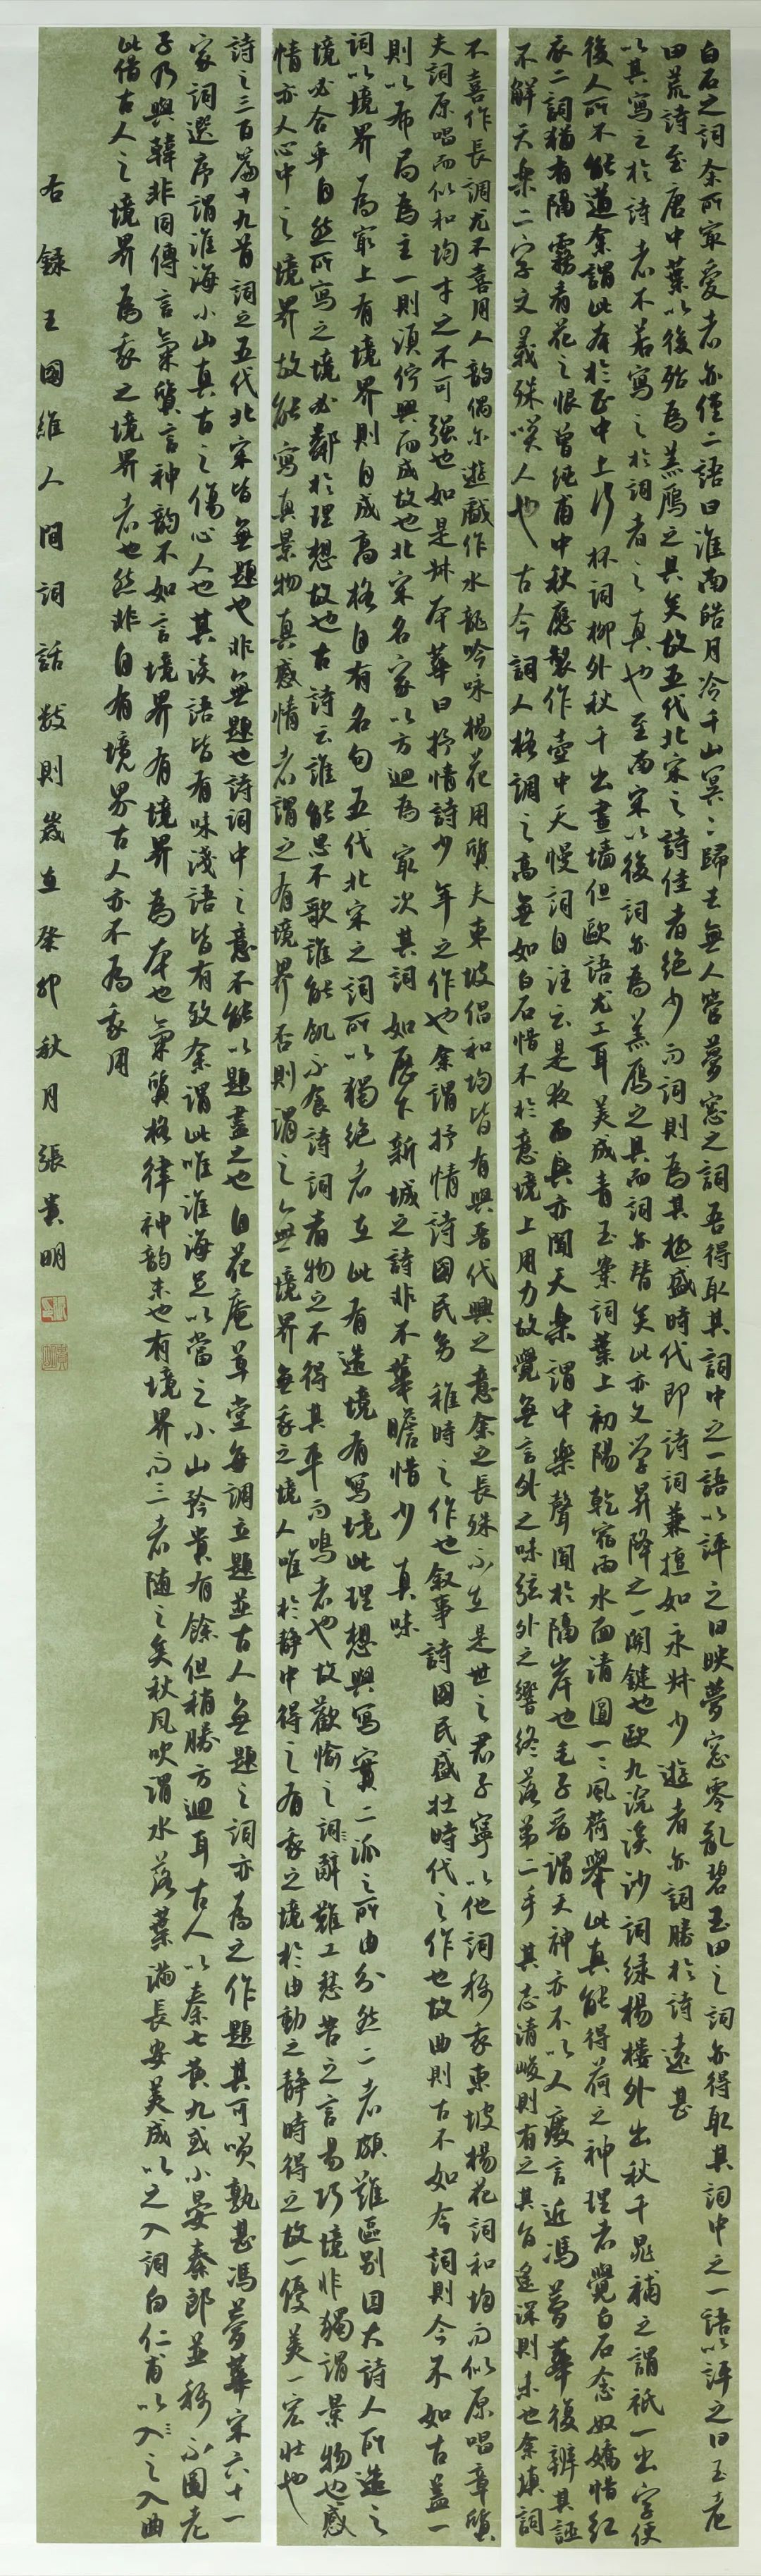 白石之词余所最爱者亦僅二語曰淮南皓月冷千山冥々歸去無人管夢窓之詞吾得取其詞中之一語以評之曰映夢窓零亂碧玉田之詞亦得取其詞中之一語以評之曰玉老
田荒詩至唐中葉以後殆為羔雁之具矣故五代北宋之詩佳者絶少而詞則為其極盛時代即詩詞兼擅如永叔少遊者亦詞勝於詩遠甚
以其寫之於詩者不若寫之於詞者之真也至南宋以後詞亦為羔雁之具而詞亦替矣此亦文学昇降之一関鍵也歐九浣溪沙詞緑楊楼外出秋千晁補之謂衹一出字便
後人所不能道余謂此本於正中上行杯詞柳外秋千出畫墙但歐語尤工耳美成青玉案詞葉上初陽乾宿雨水面清圓一々風荷舉此真能得荷之神理者覺白石念奴嬌惜红
衣二詞猶有隔霧看花之恨曾純甫中秋應製作壺中天慢詞自注云是夜西興亦聞天樂謂中樂聲聞於隔岸也毛子晋謂天神亦不以人廢言近馮夢華復辨其誣
不解天樂二字文義殊笑人也 古今詞人格調之高無如白石惜不於意境上用力故覺無言外之味弦外之響终落第二手其志清峻則有之其旨遥深則未也余填詞
不喜作長調尤不喜用人韵偶尔遊戲作水龍吟咏楊花用質夫東坡倡和均皆有與晋代興之意余之長殊不在是世之君子寧以他詞稱我東坡楊花詞和均而似原唱章質
夫詞原唱而似和均才之不可强也如是叔本華曰抒情詩少年之作也余謂抒情詩国民幼稚時之作也叙事詩国民盛壮時代之作也故曲則古不如今詞則今不如古蓋一
則以布局為主一則須伫興而成故也北宋名家以方廻為最次其詞如歷下新城之詩非不華瞻惜少真味
詞以境界為最上有境界則自成高格自有名句五代北宋之詞所以獨绝者在此有造境有寫境此理想與寫實二派之所由分然二者頗難區别因大詩人所造之
境必合乎自然所寫之境必鄰於理想故也古詩云誰能思不歌誰能飢不食詩詞者物之不得其平而鳴者也故歡愉之詞辭難工愁苦之言易巧境非獨謂景物也感
情亦人心中之境界故能寫真景物真感情者謂之有境界否則謂之無境界無我之境人唯於静中得之有我之境於由動之静時得之故一優美一宏壮也
詩之三百篇十九首詞之五代北宋皆無題也非無題也詩詞中之意不能以題盡之也自花庵草堂每調立題並古人無題之詞亦為之作題其可笑孰甚馮夢華宋六十一
家詞選序謂淮海小山真古之傷心人也其淡語皆有味淺語皆有致余謂此唯淮海足以當之小山矜貴有餘但稍勝方廻耳古人以秦七黄九或小晏秦郎並稱不圖老
子乃與韓非同傳言氣質言神韵不如言境界有境界為本也氣質格律神韵末也有境界而三者随之矣秋风吹渭水落葉满長安美成以之入詞白仁甫以々入之入曲
此借古人之境界為我之境界者也然非自有境界古人亦不為我用
右録王國維人間詞話数則歲在癸卯秋月張貴明